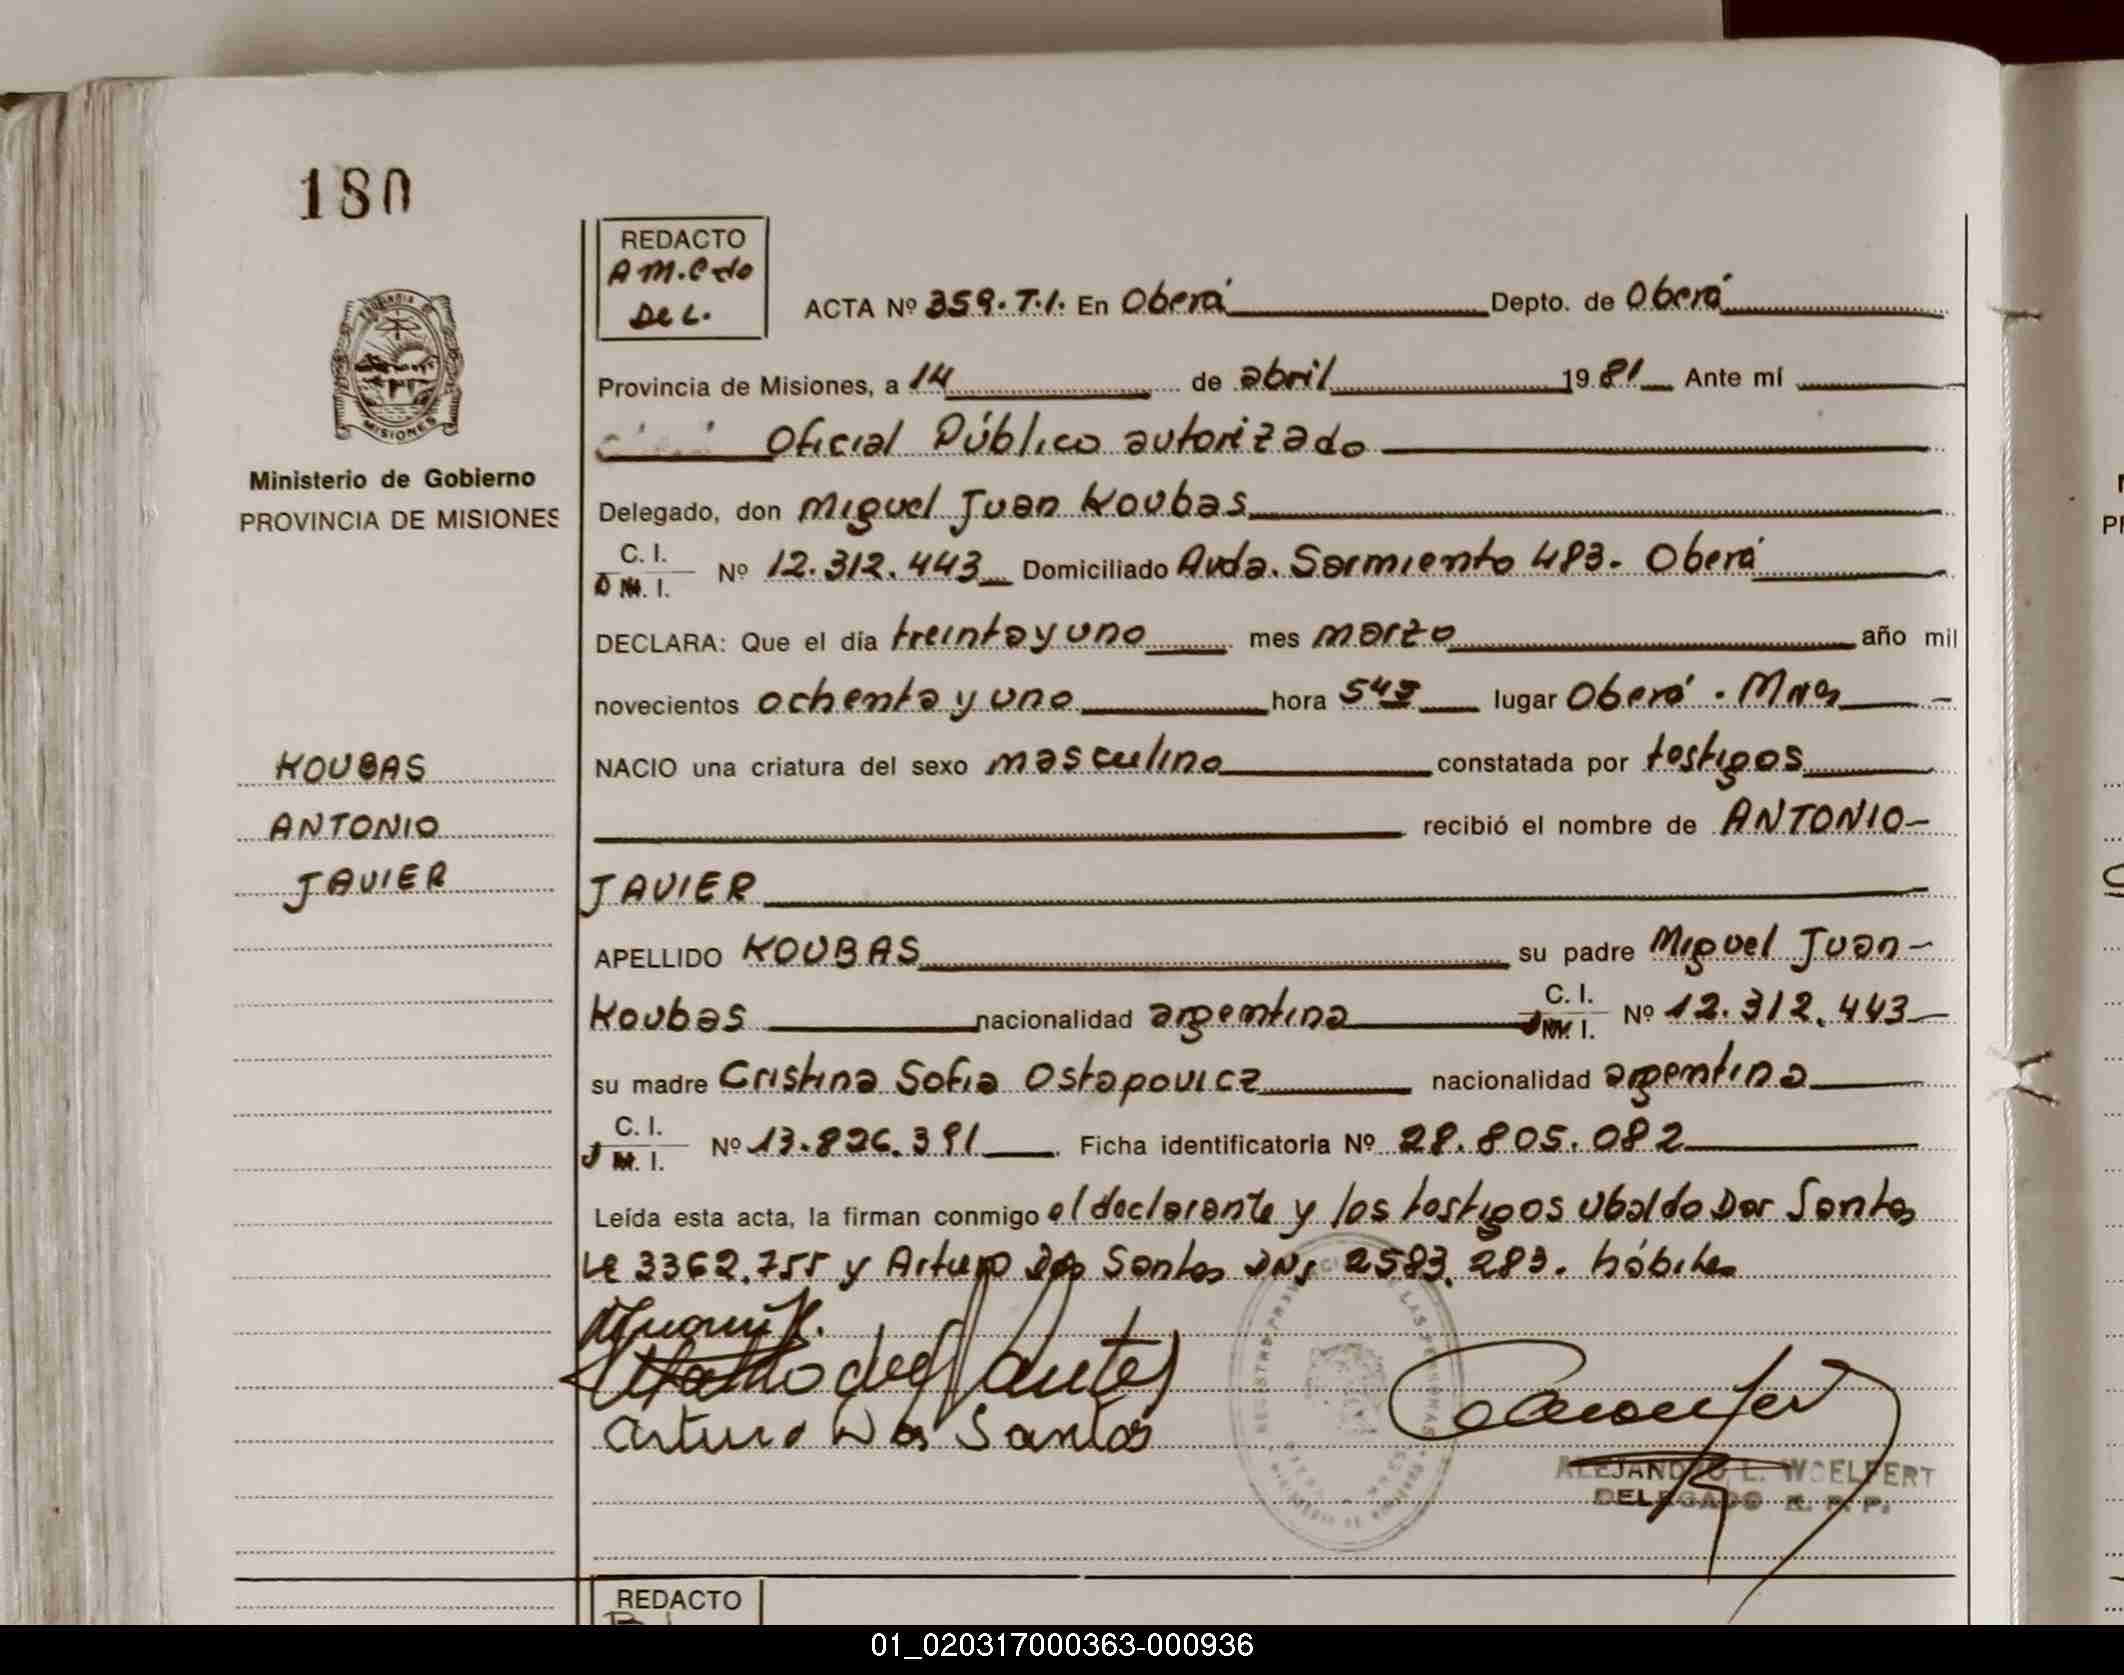 180
REDACTO
A M.C do
Del.
ACTA Nº 359.T.I. En Oberá Depto. de Oberá
Provincia de Misiones, a 14 de abril 1981 Ante mí
Oficial Público autorizado
Ministerio de Gobierno
PROVINCIA DE MISIONES
Delegado, don Miguel Juan Koubas
C. I.
D M. I. Nº 12.312.443 Domiciliado Avda. Sarmiento 483. Oberá
DECLARA: Que el día treinta y uno mes marzo año mil
novecientos ochenta y uno hora 5 45 lugar Oberá . Mnes
KOUBAS
NACIO una criatura del sexo masculino constatada por testigos
ANTONIO
recibió el nombre de ANTONIO
JAVIER
JAVIER
APELLIDO KOUBAS su padre Miguel Juan
Koubas nacionalidad argentina C. I. M. I. Nº 12.312.443
su madre Cristina Sofia Ostapovicz nacionalidad argentina
C. I.
M. I. Nº 13.826.391 Ficha identificatoria Nº 28.805.082
Leída esta acta, la firman conmigo el declarante y los testigos Ubaldo Dos Santos
Le 3362.755 y Arturo Dos Santos DNI 2583.283. hábiles
Ubaldo dos Santos
Arturo Dos Santos
ALEJANDRO L. WOELFERT
DELEGADO R. P. P.
REDACTO
01_020317000363-000936